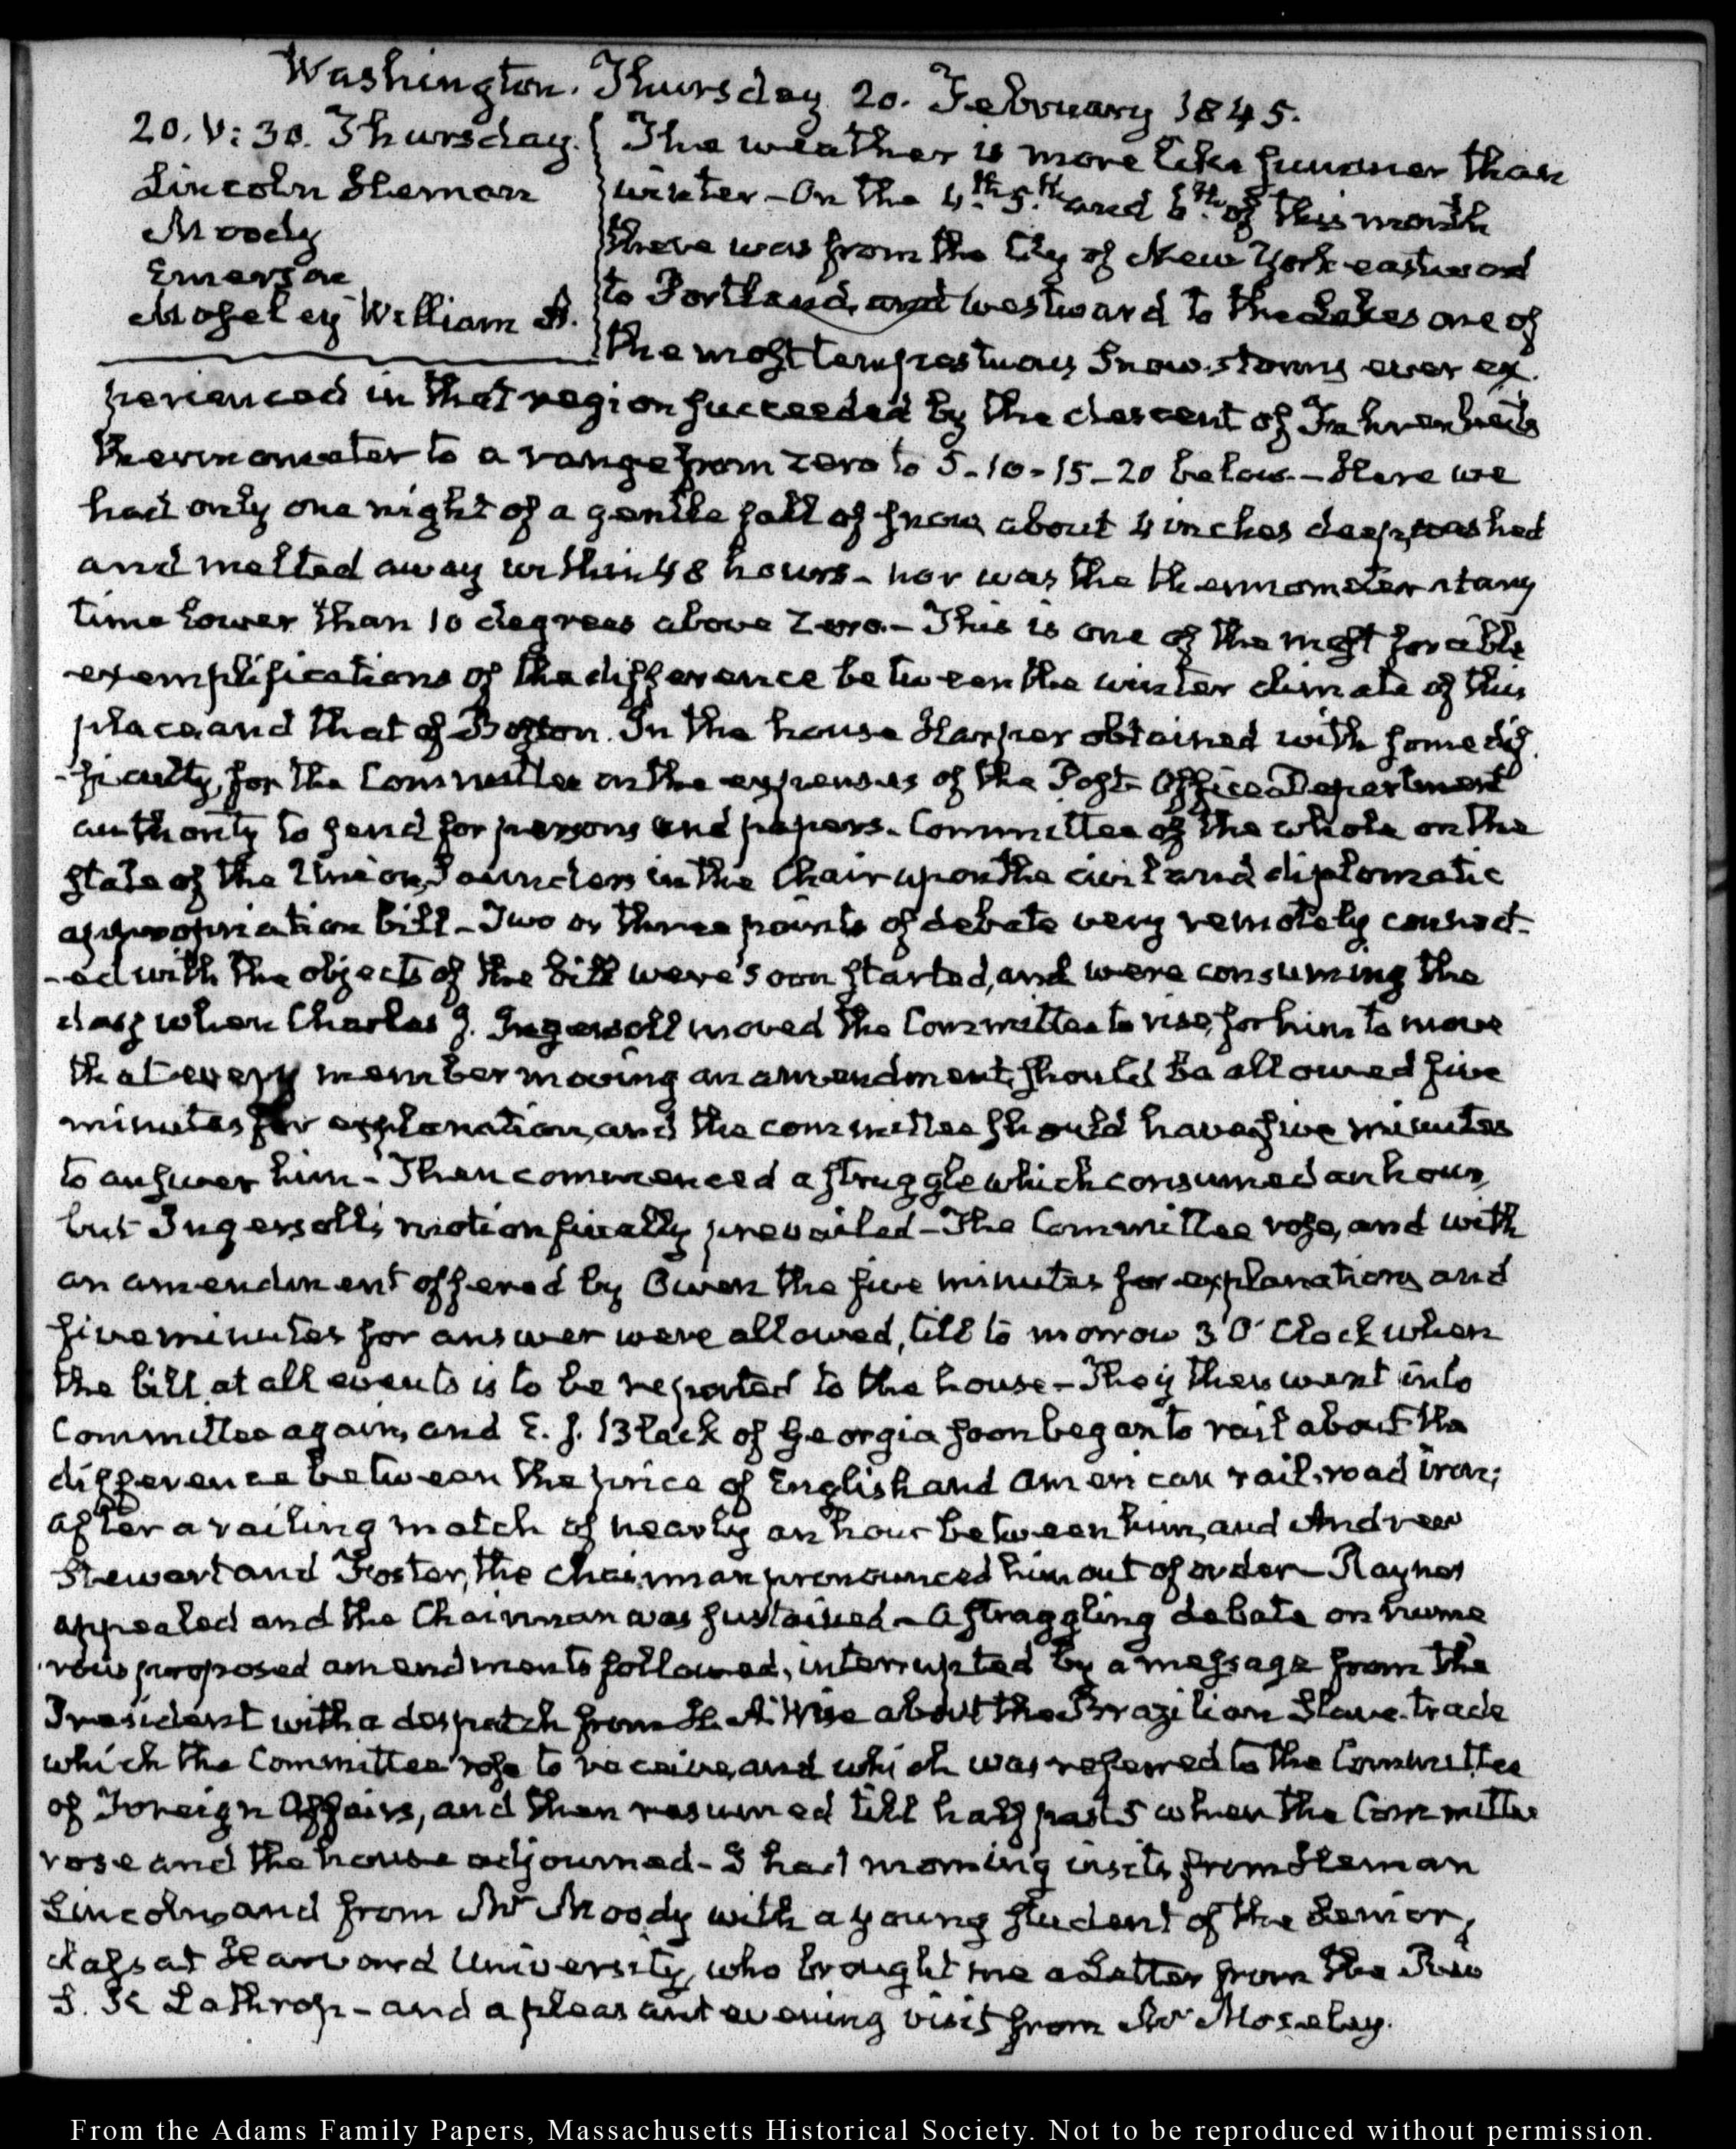 Washington. Thursday 20. February 1845.
20. V: 30. Thursday.
Lincoln Heman
Moody
Emerson
Moseley William A.
The weather is more like summer than
winter – On the 4th. 5th. and 6th. of this month
there was from the City of New York eastward
to Portland, and westward to the Lakes one of
the most tempestuous Snow-storms ever ex-
perienced in that region succeeded by the descent of Fahrenheits
thermometer to a range from zero to 5-10-15-20 below. – Here we
had only one night of a gentle fall of snow about 4 inches deep, washed
and melted away within 48 hours – nor was the thermometer at any
time lower than 10 degrees above Zero. – This is one of the most forcible
exemplifications of the difference between the winter climate of this
place and that of Boston. In the house Harper obtained with some dif-
-ficulty, for the Committee on the expenses of the Post-Office Department
authority to send for persons and papers. Committee of the whole on the
state of the Union, Saunders in the Chair upon the civil and diplomatic
appropriation bill – Two or three points of debate very remotely connect-
-ed with the objects of the bill were soon started, and were consuming the
day when Charles J. Ingersoll moved the Committee to rise, for him to move
that every member moving an amendment, should be allowed five
minutes for explanation, and the committee should have five minutes
to answer him – Then commenced a struggle which consumed an hour,
but Ingersoll's motion finally prevailed – The Committee rose, and with
an amendment offered by Owen the five minutes for explanation, and
five minutes for answer were allowed, till to morrow 3 O'Clock when
the bill at all events is to be reported to the house – They then went into
Committee again, and E. J. Black of Georgia soon began to rail about the
difference between the price of English and American rail-road iron;
after a railing match of nearly an hour between him, and Andrew
Stewart and Foster, the chairman pronounced him out of order – Rayner
appealed and the Chairman was sustained – A straggling debate on nume
rous proposed amendments followed, interrupted by a message from the
President with a despatch from H. A. Wise about the Brazilian Slave-trade
which the Committee rose to receive, and which was referred to the Committee
of Foreign Affairs, and then resumed till half past 5 when the Committee
rose and the house adjourned – I had morning visits from Heman
Lincoln, and from Mr Moody with a young student of the Senior,
class at Harvard University, who brought me a Letter from the Revd
S. K Lothrop – and a pleasant evening visit from Mr Moseley.
From the Adams Family Papers, Massachusetts Historical Society. Not to be reproduced without permission.